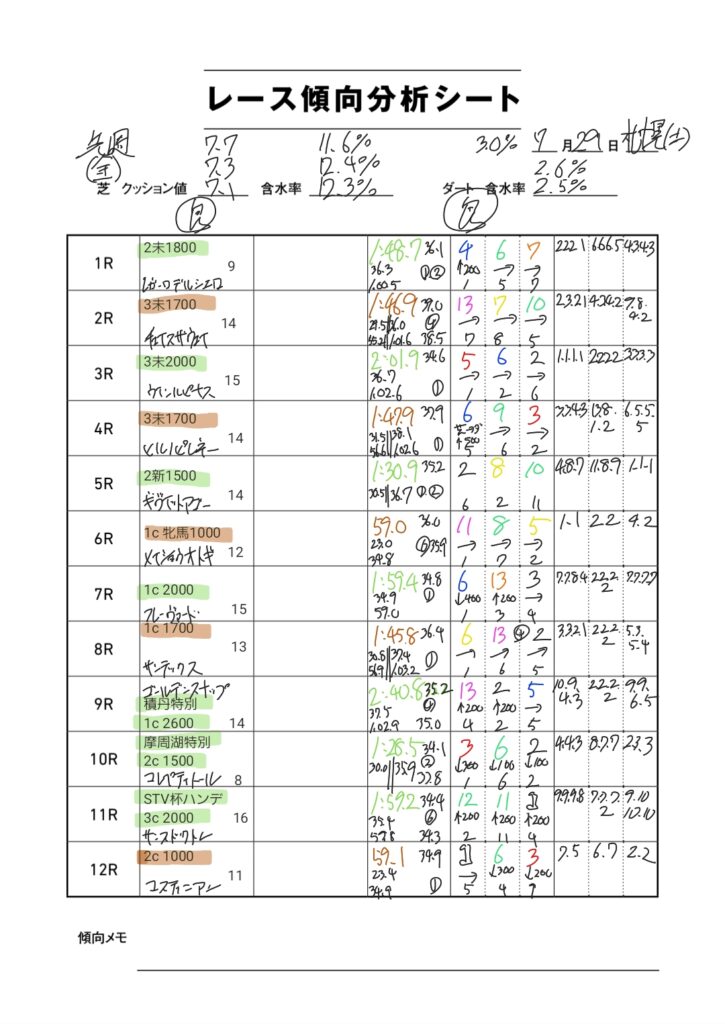 レース傾向分析シート
先週 7.7 11.6% 3.0% 7月29日 札幌(土)
(金) 7.3 12.4% 2.6%
芝 クッション値 7.1 含水率 12.3% ダート 含水率 2.5%
良 良
1R 2未1800 9 1:48.7 36.1 4 6 7 2.2.2.1 6.6.6.5 4.3.4.3
36.3 ①② ↑200 → →
1.00.5 1 5 7
2R 3未1700 14 1:46.9 39.0 13 7 10 2.3.2.1 4.2.4.2 9.8.
→ → → 4.2
38.5 7 8 5
3R 3未2000 15 2:01.9 34.6 5 6 2 1.1.1.1 2.2.2.2 3.3.3.3
36.7 ① → → →
ウインルピナス 1.02.6 1 2 6
4R 3未1700 14 1:47.9 37.9 6 9 3 3.3.4.3 6.5.5.
31.5 38.1 → → 1.2 5
56.6 1.02.6 ① ↑500 5 6 2
5R 2新1500 14 1:30.9 35.2 2 8 10 4.8.7 11.8.9 1.1.1
30.5 36.7 ①②
6 2 11
6R 1c 牝馬1000 12 59.0 36.0 11 8 5 1.1 2.2 4.2
23.0 35.9 → → →
メイショウオトギ 34.8 1 7 2
7R 1c 2000 15 1:59.4 34.8 6 13 3 7.7.8.4 2.2.2. 7.7.7.7
34.9 ① ↓400 ↑200 → 2
フレーヴァード 59.0 1 3 4
8R 1c 1700 13 1:45.8 36.4 6 13 ④ 2 3.3.2.1 2.2.2. 5.3.
30.8 37.4 ① → → → 2 5.4
サンテックス 56.9 1.03.2 1 6 5
9R ゴールデンスナップ 2:40.8 35.2 13 2 5 10.9. 2.2.2. 9.9.
積丹特別 37.5 ① ↑200 ↑200 ↑200 4.3 2 6.5
1c 2600 14 1.02.9 35.0 4 2 5
10R 摩周湖特別 1:28.5 34.1 3 6 2 4.4.3 8.7.7 2.3.3
2c 1500 30.0 35.9 ② ↓300 ↓100 ↓100
コレペティトール 8 1 6 2
11R STV杯ハンデ 1:59.2 34.4 12 11 9.9.9.8 7.7.7. 9.10
3c 2000 16 35.4 ⑥ ↑200 ↑200 ↑200 2 10.10
サンストックトン 57.8 34.3 2 11 4
12R 2c 1000 11 59.1 34.9 6 3 7.5 6.7 2.2
23.4 → ↓300 ↓200
コスティニアン 34.9 ① 5 4 7
傾向メモ